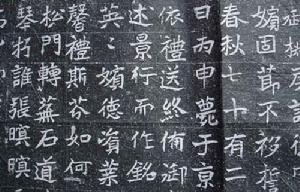 嬪固節不移誓
春秋七十有二
日丙申薨于京
依禮送終備御
述景行而作銘
英〻嬪德業
馨禮斯芬如何
松門轉蕪石道
琴誰張暝暝